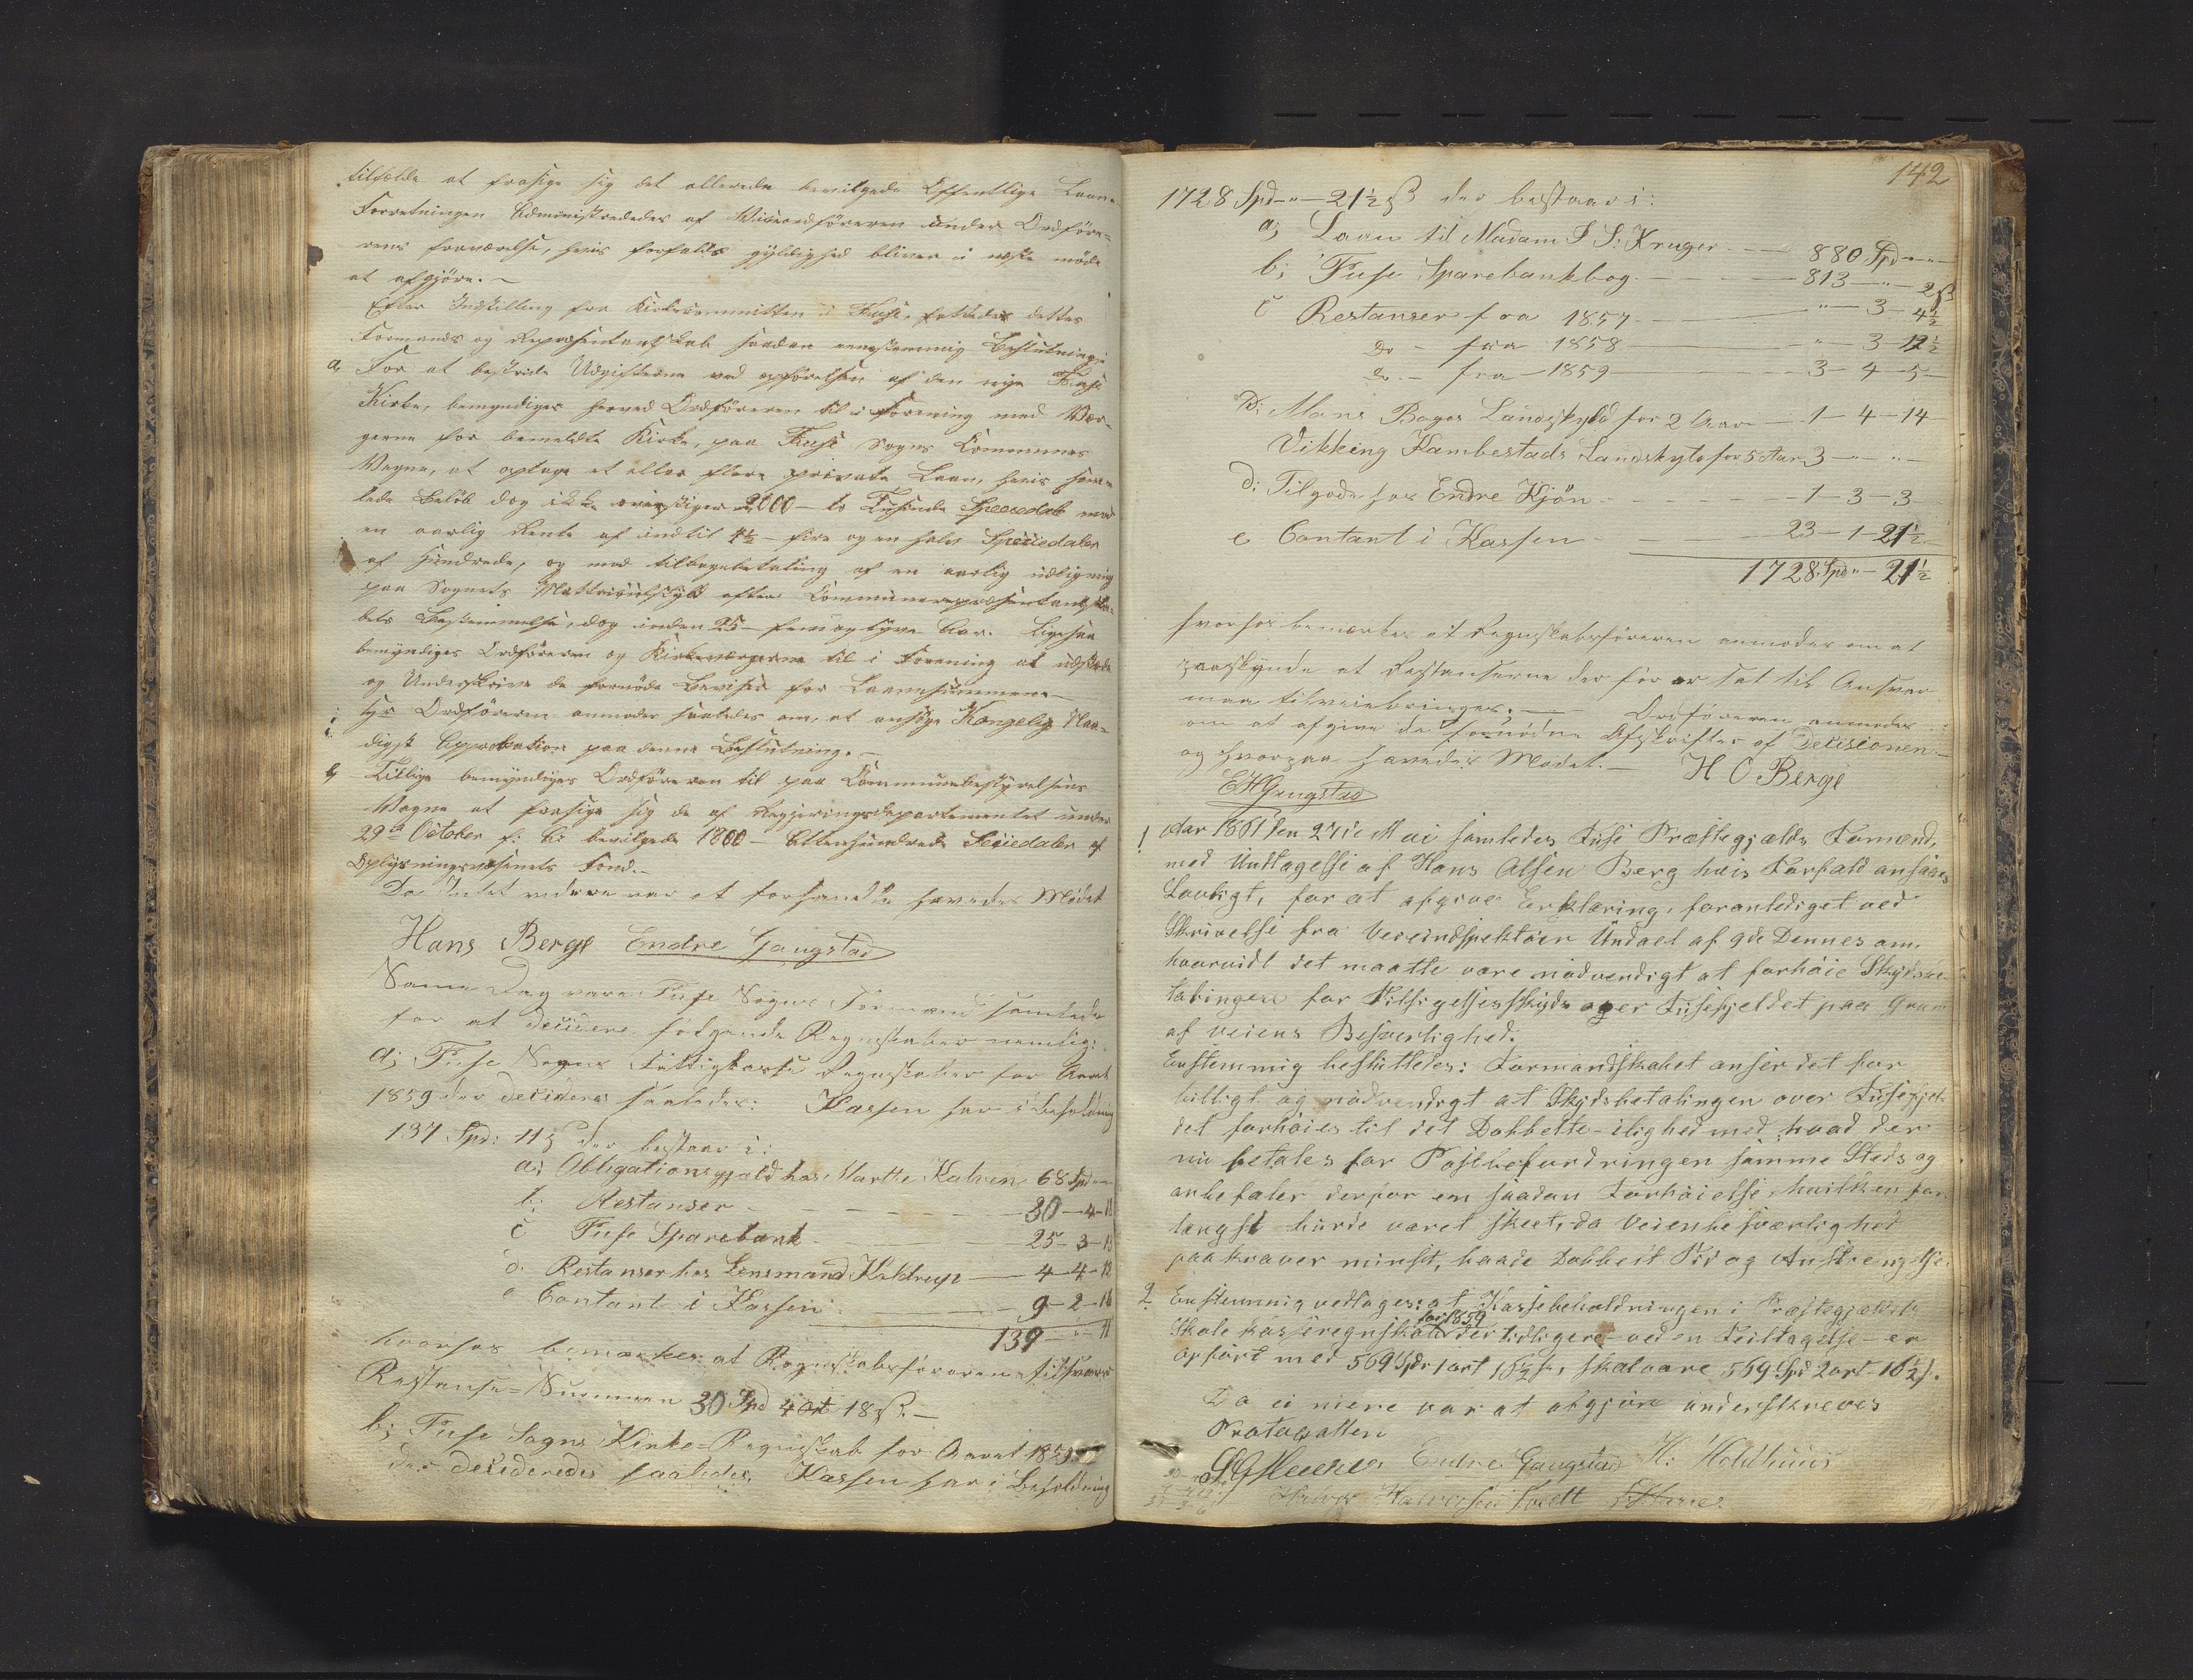 tilfælde at frasige sig det allerede bevilgede Offentlige Laan.
Forretningen administreredes af Viceordföreren under Ordföre=
rens fraværelse, hvis forfalds gyldighed bliver i næste möde
at afgjöre.
Efter Indstilling fra Kirkecommitten i Fuse, fattedes dettes
Formands og Repræsentantskab saadan eenstemmig Beslutning:
a, For at bestride Udgifterne ved opförelsen af den nye Fuse
Kirke, bemyndiges herved Ordföreren til i Forening med Vær-
gerne for bemeldte Kirke, paa Fuse Sogns Communes
Vegne, at optage et eller flere private Laan, hvis sam-
lede Belöb dog ikke overstiger 2000 - to Tusinde Speciedaler mod
en aarlig Rente af indtil 4½ - fire og en halv Speciedaler
af Hundrede, og med tilbagebetaling af en aarlig udligning
paa Sognets Matriculskyld efter Communerepræsentantska-
bets Bestemmelse, dog inden 25 - fem og tyve Aar. Ligesaa
bemyndiges Ordföreren og Kirkeværgerne til i Forening at udstæde
og Underskrive de fornödne Beviser for Laanesummene
Hr Ordföreren anmodes saaledes om, at ansöge Kongelig Naa-
digst Approbation paa denne Beslutning.
b, Tillige bemyndiges Ordföreren til paa Communebestyrelsens
Vegne at frasige sig de af Regjeringsdepartementet under
29de October f. A. bevilgede 1800 - Attenhundrede Speciedaler af
Oplysningsvæsenets Fond.
Da Intet videre var at forhandle hævedes Mödet
Hans Berge Endre Gaugstad
Samme Dag vare Fuse Sogns Formænd samlede
for at decidere følgende Regnskaber nemlig:
a; Fuse Sogns Fattigkasse Regnskaber for Aaret
1859 der decideres saaledes: Kassen har i Beholdning
137 Spd: 11 ß der bestaar i:
a; Obligationsgjæld hos Marthe Kalven 68 Spd " "
b; Restanser 30 - 4 - 18
c Fuse Sparebank 25 - 3 - 13
d. Restanser hos Lensmand Koldrup 4 - 4 - 12
e Contant i Kassen 9 - 2 - 16
139 - " - 11
hvorhos bemærkes at Regnskabsföreren tilsvarer
Restanse=Summen 30 Spd 4 Ort 18 ß.
b; Fuse Sogns Kirke=Regnskab for Aaret 1859
der decideredes saaledes Kassen har i Beholdning
142
1728 Spd - " - 21½ ß der bestaar i:
a; Laan til Madam S S: Kruger 880 Spd " "
b; Fuse Sparebankbog 813 - " - 2 ß
c Restanser fra 1857 " - 3 - 4½
Do - fra 1858 " - 3 - 12½
Do - fra 1859 3 - 4 - 5
D; Mons Boges Landskyld for 2 Aar 1 - 4 - 14
Vikking Hambestads Landskyld for 5 Aar 3 - " - "
d; Tilgode hos Endre Kjön 1 - 3 - 3
e Contant i Kassen 23 - 1 - 21½
1728 Spd " - 21½
hvorhos bemærkes at Regnskabsföreren anmodes om at
paaskynde at Restanserne der før er sat til Ansvar
maa tilveiebringes. Ordföreren anmodes
om at afgive de fornödne Afskrifter af Decisionen
og hvorpaa hævedes Mödet. H O Berge
E H Gaugstad
1 Aar 1861 den 27de Mai samledes Fuse Præstegjælds Formænd,
med Undtagelse af Hans Olsen Berg hvis Forfald ansaaes
Lovligt, for at afgive Erklæring, foranlediget ved
Skrivelse fra Veiindspektøren Undal af 9de Dennes om,
hvorvidt det maatte være nødvendigt at forhöie Skydsbe-
talingen for Tilsigelsesskyds over Fusefjeldet paa Grund
af Veiens Besværlighed.
Enstemmig besluttedes: Formandskabet anser det for
billigt og nødvendigt at Skydsbetalingen over Fusefjel-
det forhöies til det Dobbelte - i lighed med hvad der
nu betales for Postbefordringen samme Steds og
anbefaler derfor en saadan Forhöielse, hvilken for
længst burde været skeet, da Veien besværlighed
paakræver mindst, baade Dobbelt Tid og Anstrengelse.
2 Enstemmig vedtages: at Kassebeholdningen i Præstegjældets
Skolekasseregnskab for 1859 der tidligere - ved en Feiltagelse - er
opfört med 569 Spdr 1 ort 16½ ß, skal være 559 Spd 2 ort 16½ ß.
Da ei mere var at afgjøre underskreves
Protocollen
Endre Gaugstad H: Holdhuus